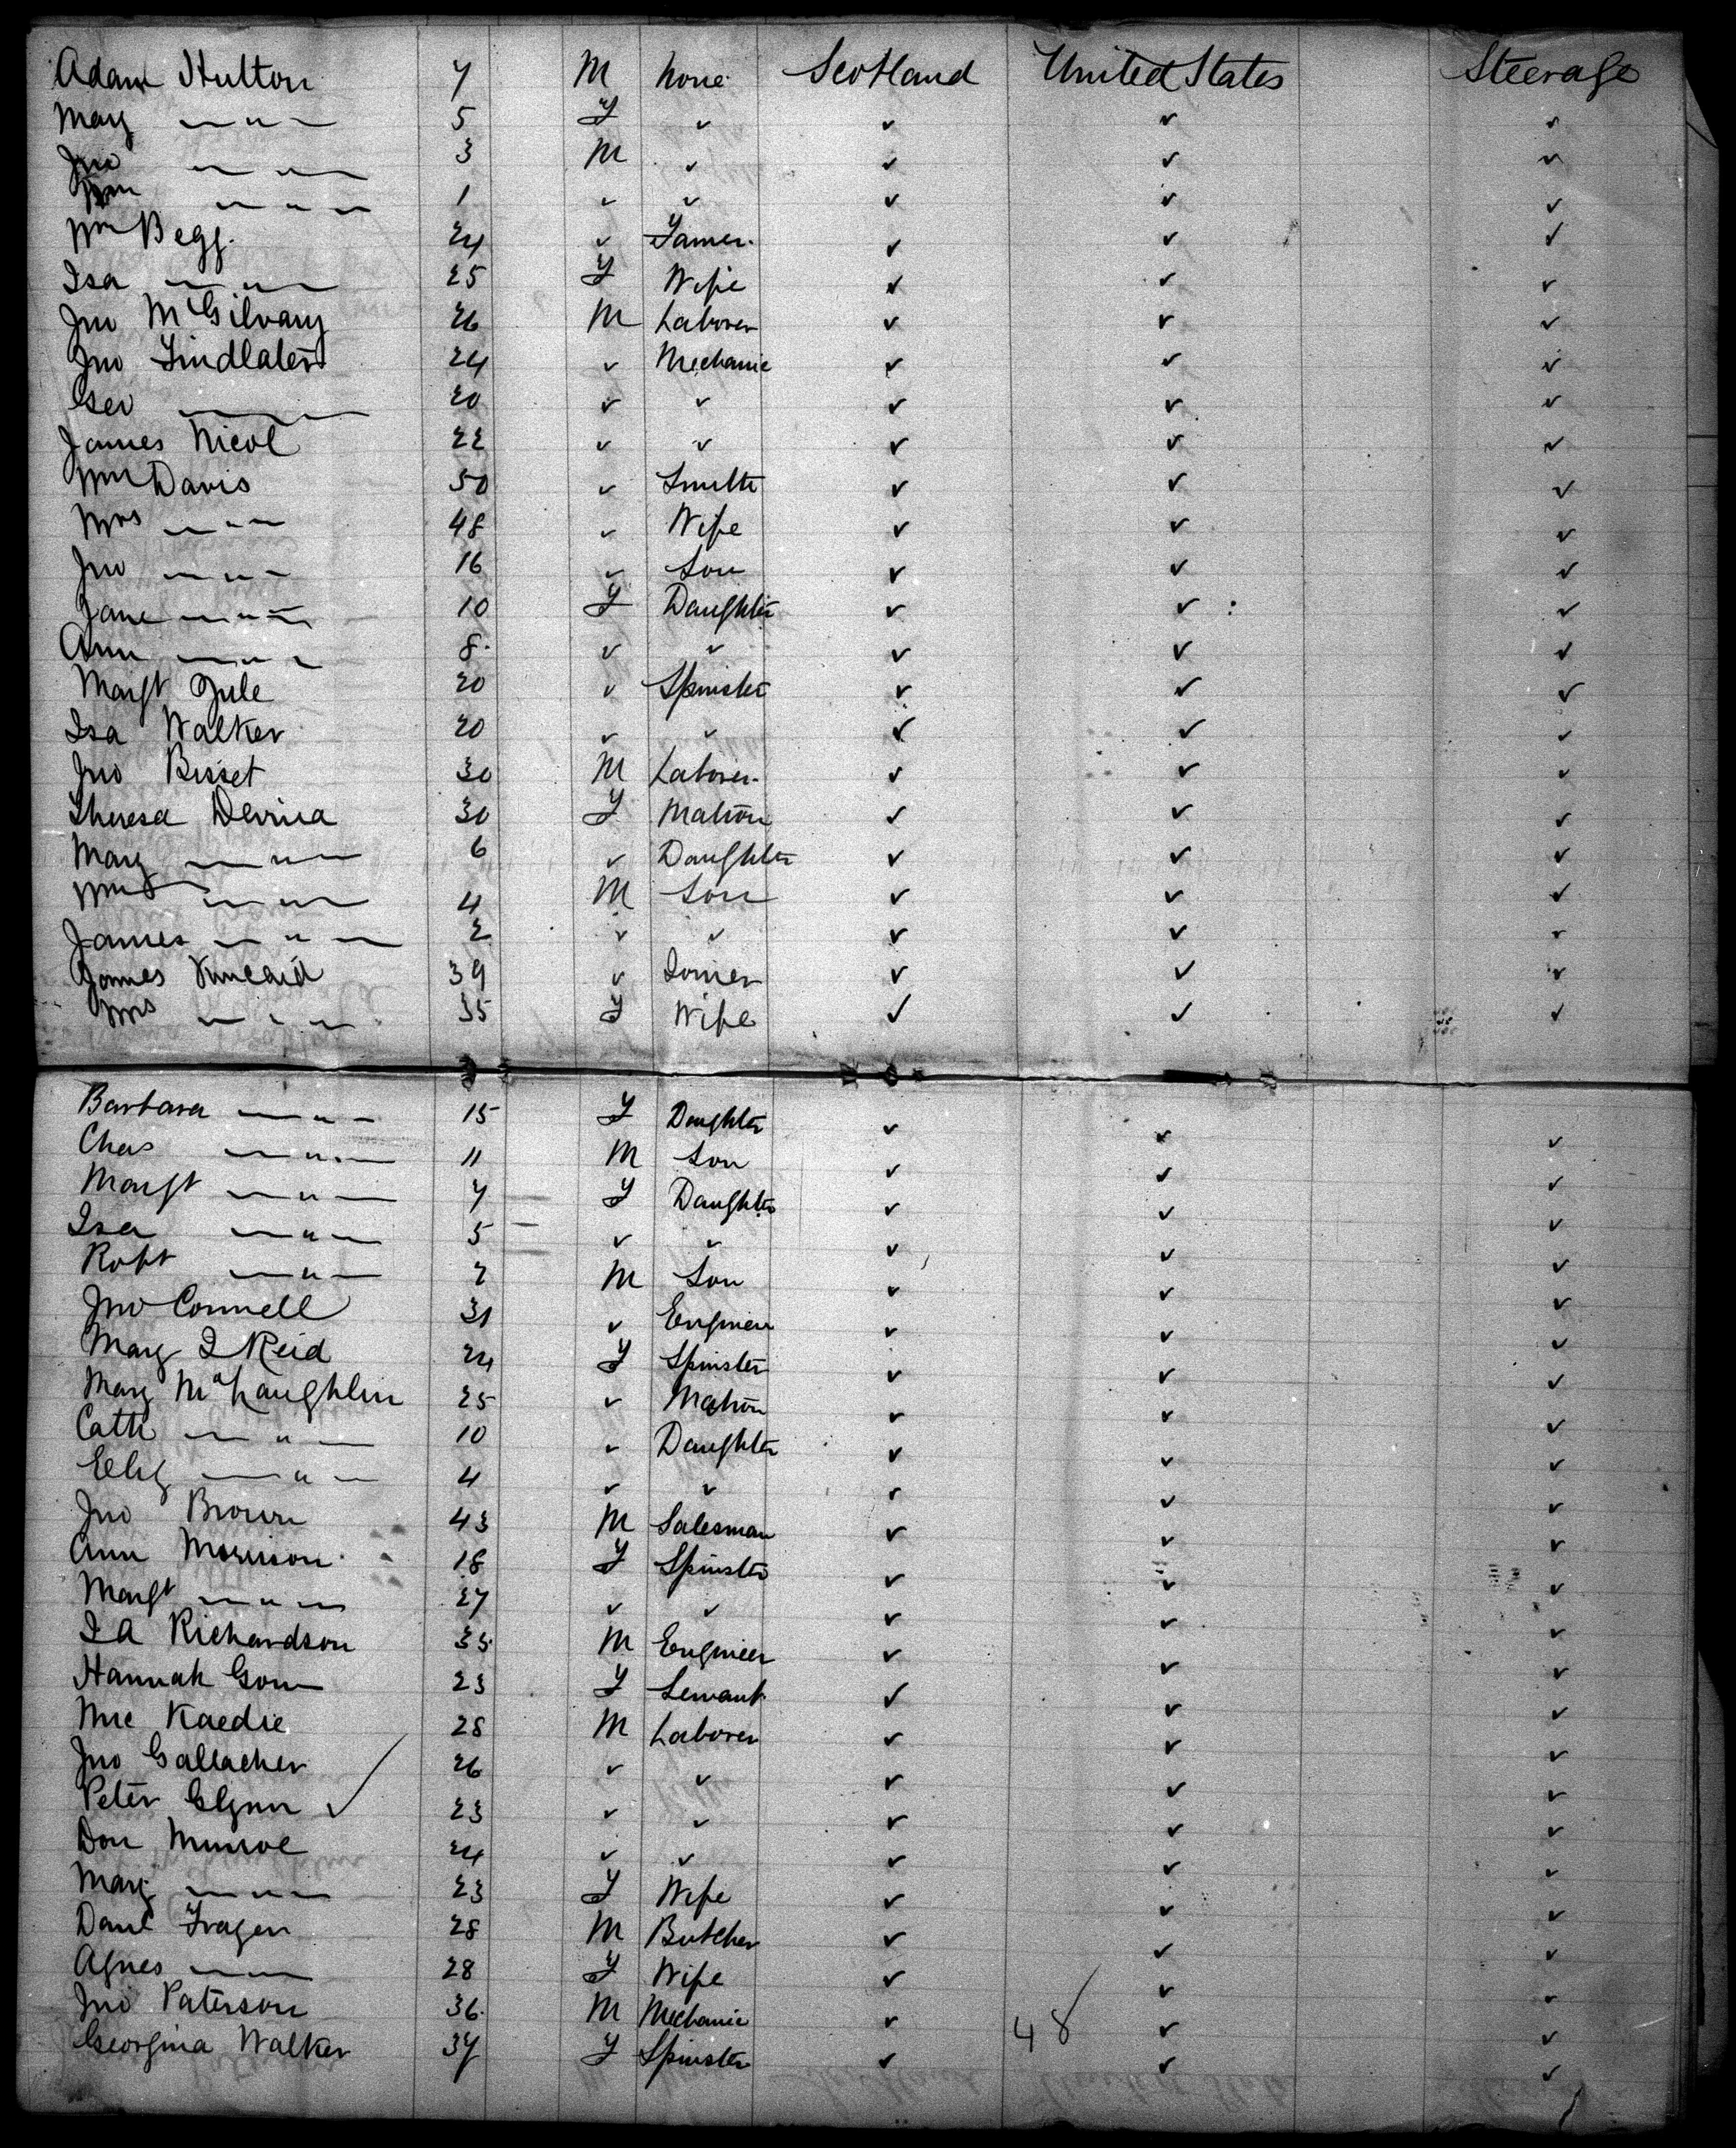 Adam Hutton 7 M none Scotland United States Steerage
Mary — " — 5 F ✓ ✓ ✓ ✓
Jno — " — 3 M ✓ ✓ ✓ ✓
Wm — " — 1 ✓ ✓ ✓ ✓ ✓
Wm Begg. 24 ✓ Famer. ✓ ✓ ✓
Isa — " — 25 F Wife ✓ ✓ ✓
Jno McGilvary 26 M Laborer ✓ ✓ ✓
Jno Findlater 24 ✓ Mechanic ✓ ✓ ✓
Geo — 20 ✓ ✓ ✓ ✓ ✓
James Nicol 22 ✓ ✓ ✓ ✓ ✓
Wm Davis 50 ✓ Smith ✓ ✓ ✓
Mrs — " — 48 ✓ Wife ✓ ✓ ✓
Jno — " — 16 ✓ Son ✓ ✓ ✓
Jane — " — 10 F Daughter ✓ ✓ ✓
Ann — " — 8 ✓ ✓ ✓ ✓ ✓
Margt Jule 20 ✓ Spinster ✓ ✓ ✓
Isa Walker 20 ✓ ✓ ✓ ✓ ✓
Jno Bisset 30 M Laborer ✓ ✓ ✓
Theresa 30 F Matron ✓ ✓ ✓
Mary — " — 6 ✓ Daughter ✓ ✓ ✓
Wm — " — 4 M Son ✓ ✓ ✓
James — " — 2 ✓ ✓ ✓ ✓ ✓
James Kincaid 39 ✓ Joiner ✓ ✓ ✓
Mrs — " — 35 F Wife ✓ ✓ ✓
Barbara — " — 15 F Daughter ✓ ✓ ✓
Chas — " — 11 M Son ✓ ✓ ✓
Margt — " — 7 F Daughter ✓ ✓ ✓
Isa — " — 5 ✓ ✓ ✓ ✓ ✓
Robt — " — 2 M Son ✓ ✓ ✓
Jno Connell 31 ✓ Engineer ✓ ✓ ✓
Mary I Reid 24 F Spinster ✓ ✓ ✓
Mary McLaughlin 25 ✓ Matron ✓ ✓ ✓
Cath — " — 10 ✓ Daughter ✓ ✓ ✓
Eliz — " — 4 ✓ ✓ ✓ ✓ ✓
Jno Brown 43 M Salesman ✓ ✓ ✓
Ann Morrison 18 F Spinster ✓ ✓ ✓
Margt — " — 27 ✓ ✓ ✓ ✓ ✓
I A Richardson 35 M Engineer ✓ ✓ ✓
Hannah Gow 23 F Servant ✓ ✓ ✓
Kaedie 28 M Laborer ✓ ✓ ✓
Jno Gallacher 26 ✓ ✓ ✓ ✓ ✓
Peter Glynn ✓ 23 ✓ ✓ ✓ ✓ ✓
Don Munroe 24 ✓ ✓ ✓ ✓ ✓
Mary — " — 23 F Wife ✓ ✓ ✓
Danl Frazer 28 M Butcher ✓ ✓ ✓
Agnes — 28 F Wife ✓ ✓ ✓
Jno Paterson 36 M Mechanic ✓ 48 ✓ ✓
Georgina Walker 37 F Spinster ✓ ✓ ✓